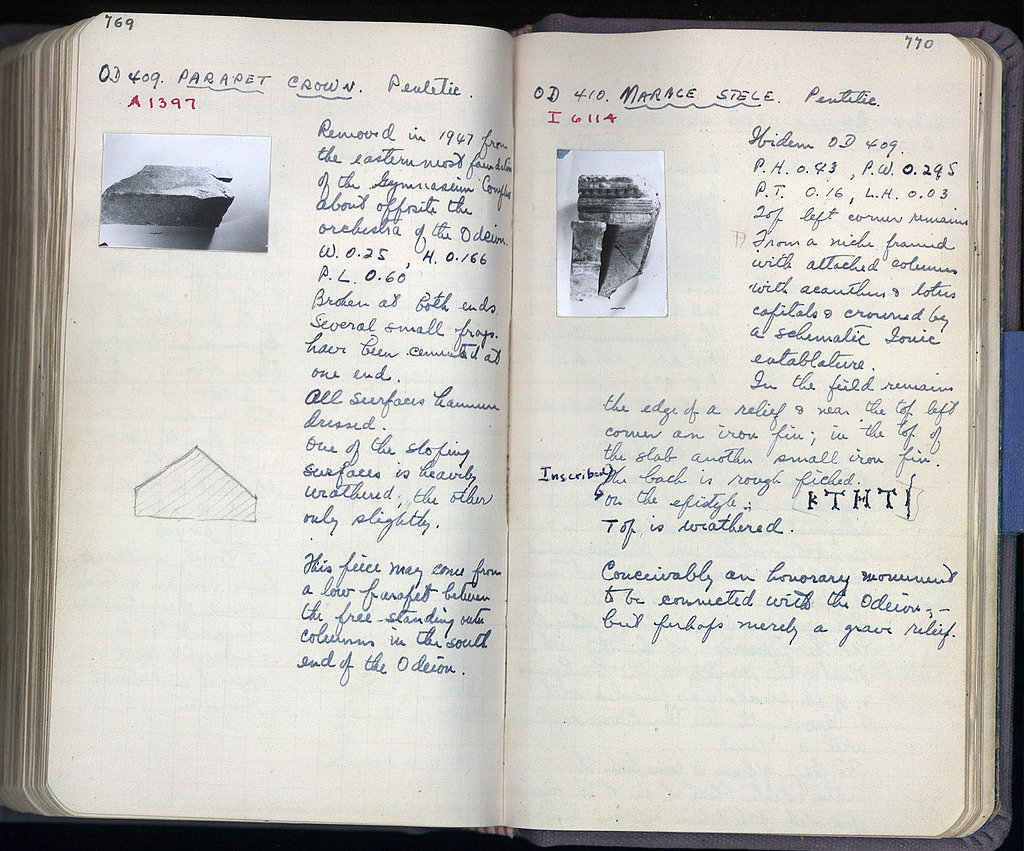 769
OD 409. PARAPET CROWN. Pentelic.
A 1397
Removed in 1947 from
the easternmost foundation
of the Gymnasium Complex
about opposite the
orchestra of the Odeion.
W. 0.25, H. 0.166
P.L. 0.60
Broken at both ends.
Several small frags.
have been cemented at
one end.
All surfaces hammer
dressed.
One of the sloping
surfaces is heavily
weathered, the other
only slightly.
This piece may come from
a low parapet between
the free-standing
columns in the south
end of the Odeion.
770
OD 410. MARBLE STELE. Pentelic.
I 6114
Ibidem OD 409.
P.H. 0.43, P.W. 0.295
P.T. 0.16, L.H. 0.03
Top left corner remains
From a niche framed
with attached columns
with acanthus & lotus
capitals & crowned by
a schematic Ionic
entablature.
In the field remains
the edge of a relief & near the top left
corner an iron pin; in the top of
the slab another small iron pin.
Inscribed
The back is rough picked.
on the epistyle:
ΚΤΗΤ
Top is weathered.
Conceivably an honorary monument
to be connected with the Odeion; –
but perhaps merely a grave relief.